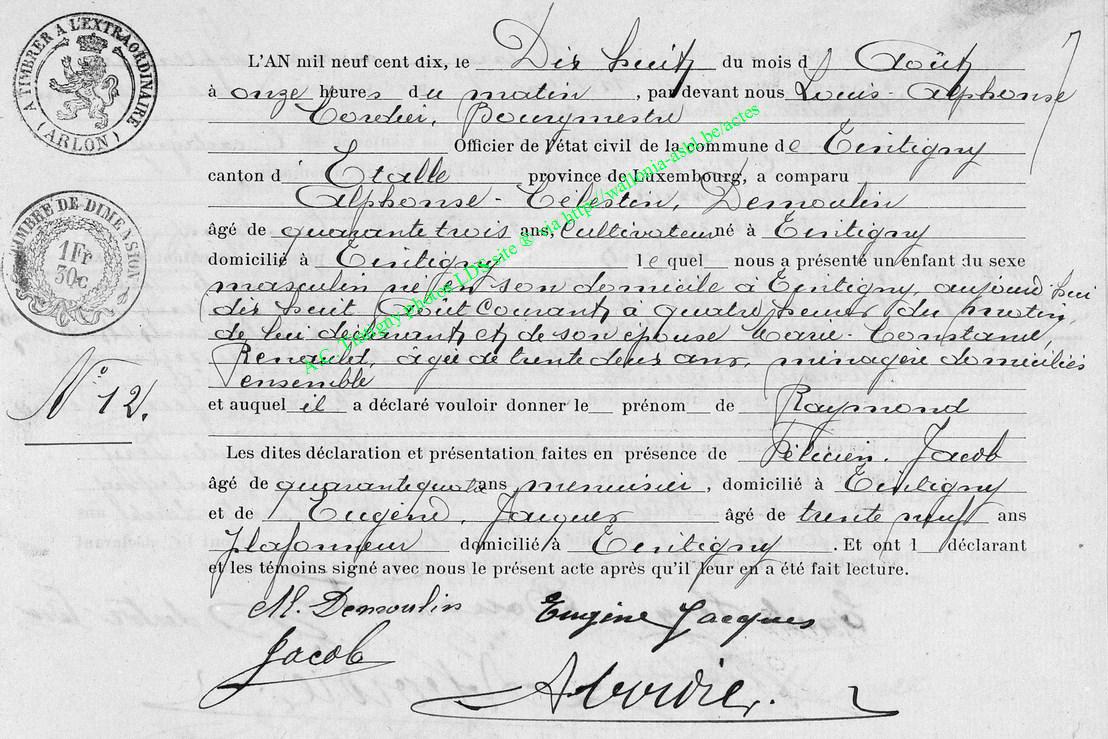 A TIMBRER A L'EXTRAORDINAIRE
(ARLON)
TIMBRE DE DIMENSION
1Fr
30c
N° 12.
L'AN mil neuf cent dix, le Dix huit du mois d Août
à onze heures du matin, par devant nous Louis-Alphonse
Cordier, Bourgmestre
Officier de l'état civil de la commune de Tintigny
canton d'Etalle province de Luxembourg, a comparu
Alphonse-Célestin, Demoulin
âgé de quarante trois ans, Cultivateur né à Tintigny
domicilié à Tintigny lequel nous a présenté un enfant du sexe
masculin né en son domicile à Tintigny, aujourd'hui
dix huit Août courant à quatre heures du matin,
de lui déclarant et de son épouse Marie-Constance,
Renauld, âgée de trente deux ans, ménagère domiciliés
ensemble
et auquel il a déclaré vouloir donner le prénom de Raymond
Les dites déclaration et présentation faites en présence de Félicien, Jacob
âgé de quarante quatre ans menuisier, domicilié à Tintigny
et de Eugène, Jacques âgé de trente neuf ans
plafonneur domicilié à Tintigny. Et ont l déclarant
et les témoins signé avec nous le présent acte après qu'il leur en a été fait lecture.
Demoulin Eugène Jacques
Jacob
A Cordier.
A.C. Tintigny-Photos LDS site ® via http://wallonia-asbl.be/actes